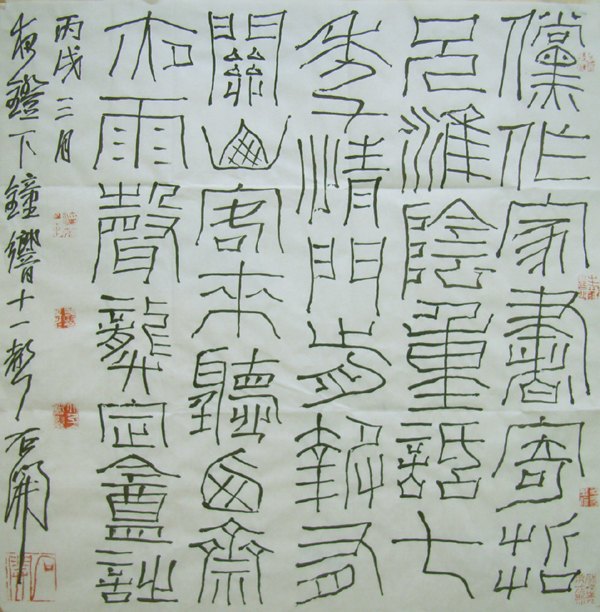 儻作家書寄哲
兄淮陰重話七
年情門前報有
關山客來聽西齋
夜雨聲龔定盦詩
丙戌三月
夜鐙下鐘響十一聲石開